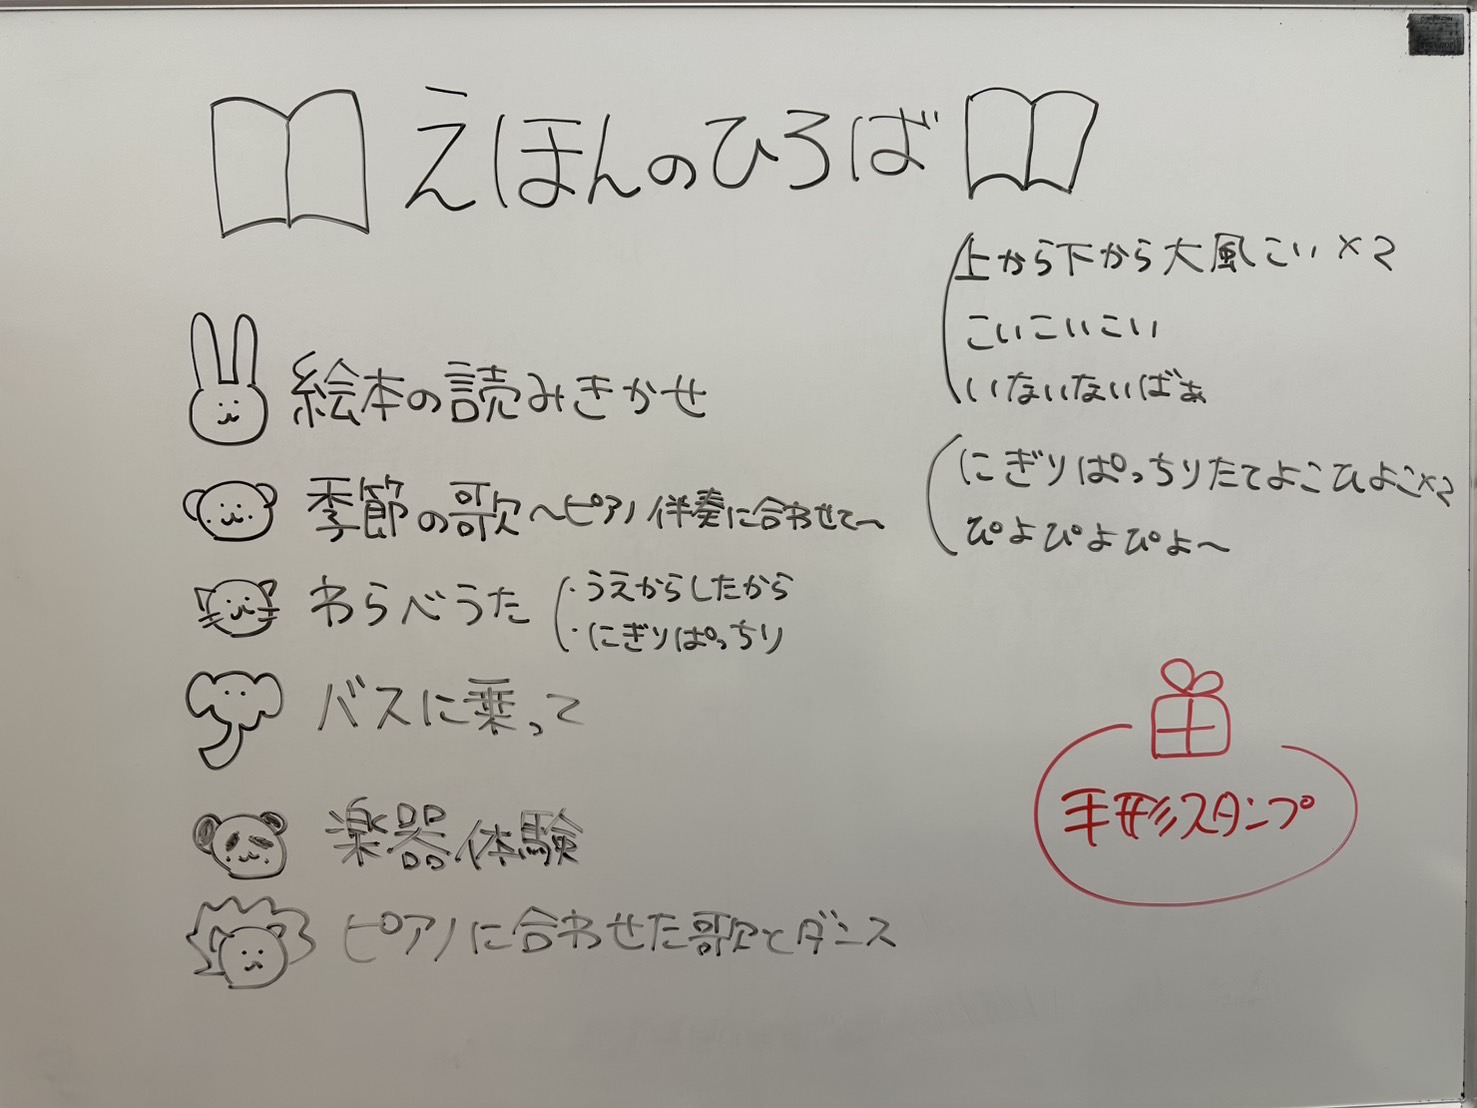 えほんのひろば
絵本の読みきかせ
季節の歌〜ピアノ伴奏に合わせて〜
わらべうた
・うえからしたから
・にぎりぱっちり
バスに乗って
楽器体験
ピアノに合わせた歌とダンス
上から下から大風こい×2
こいこいこい
いないないばぁ
にぎりぱっちりたてよこひよこ×2
ぴよぴよぴよ〜
手形スタンプ